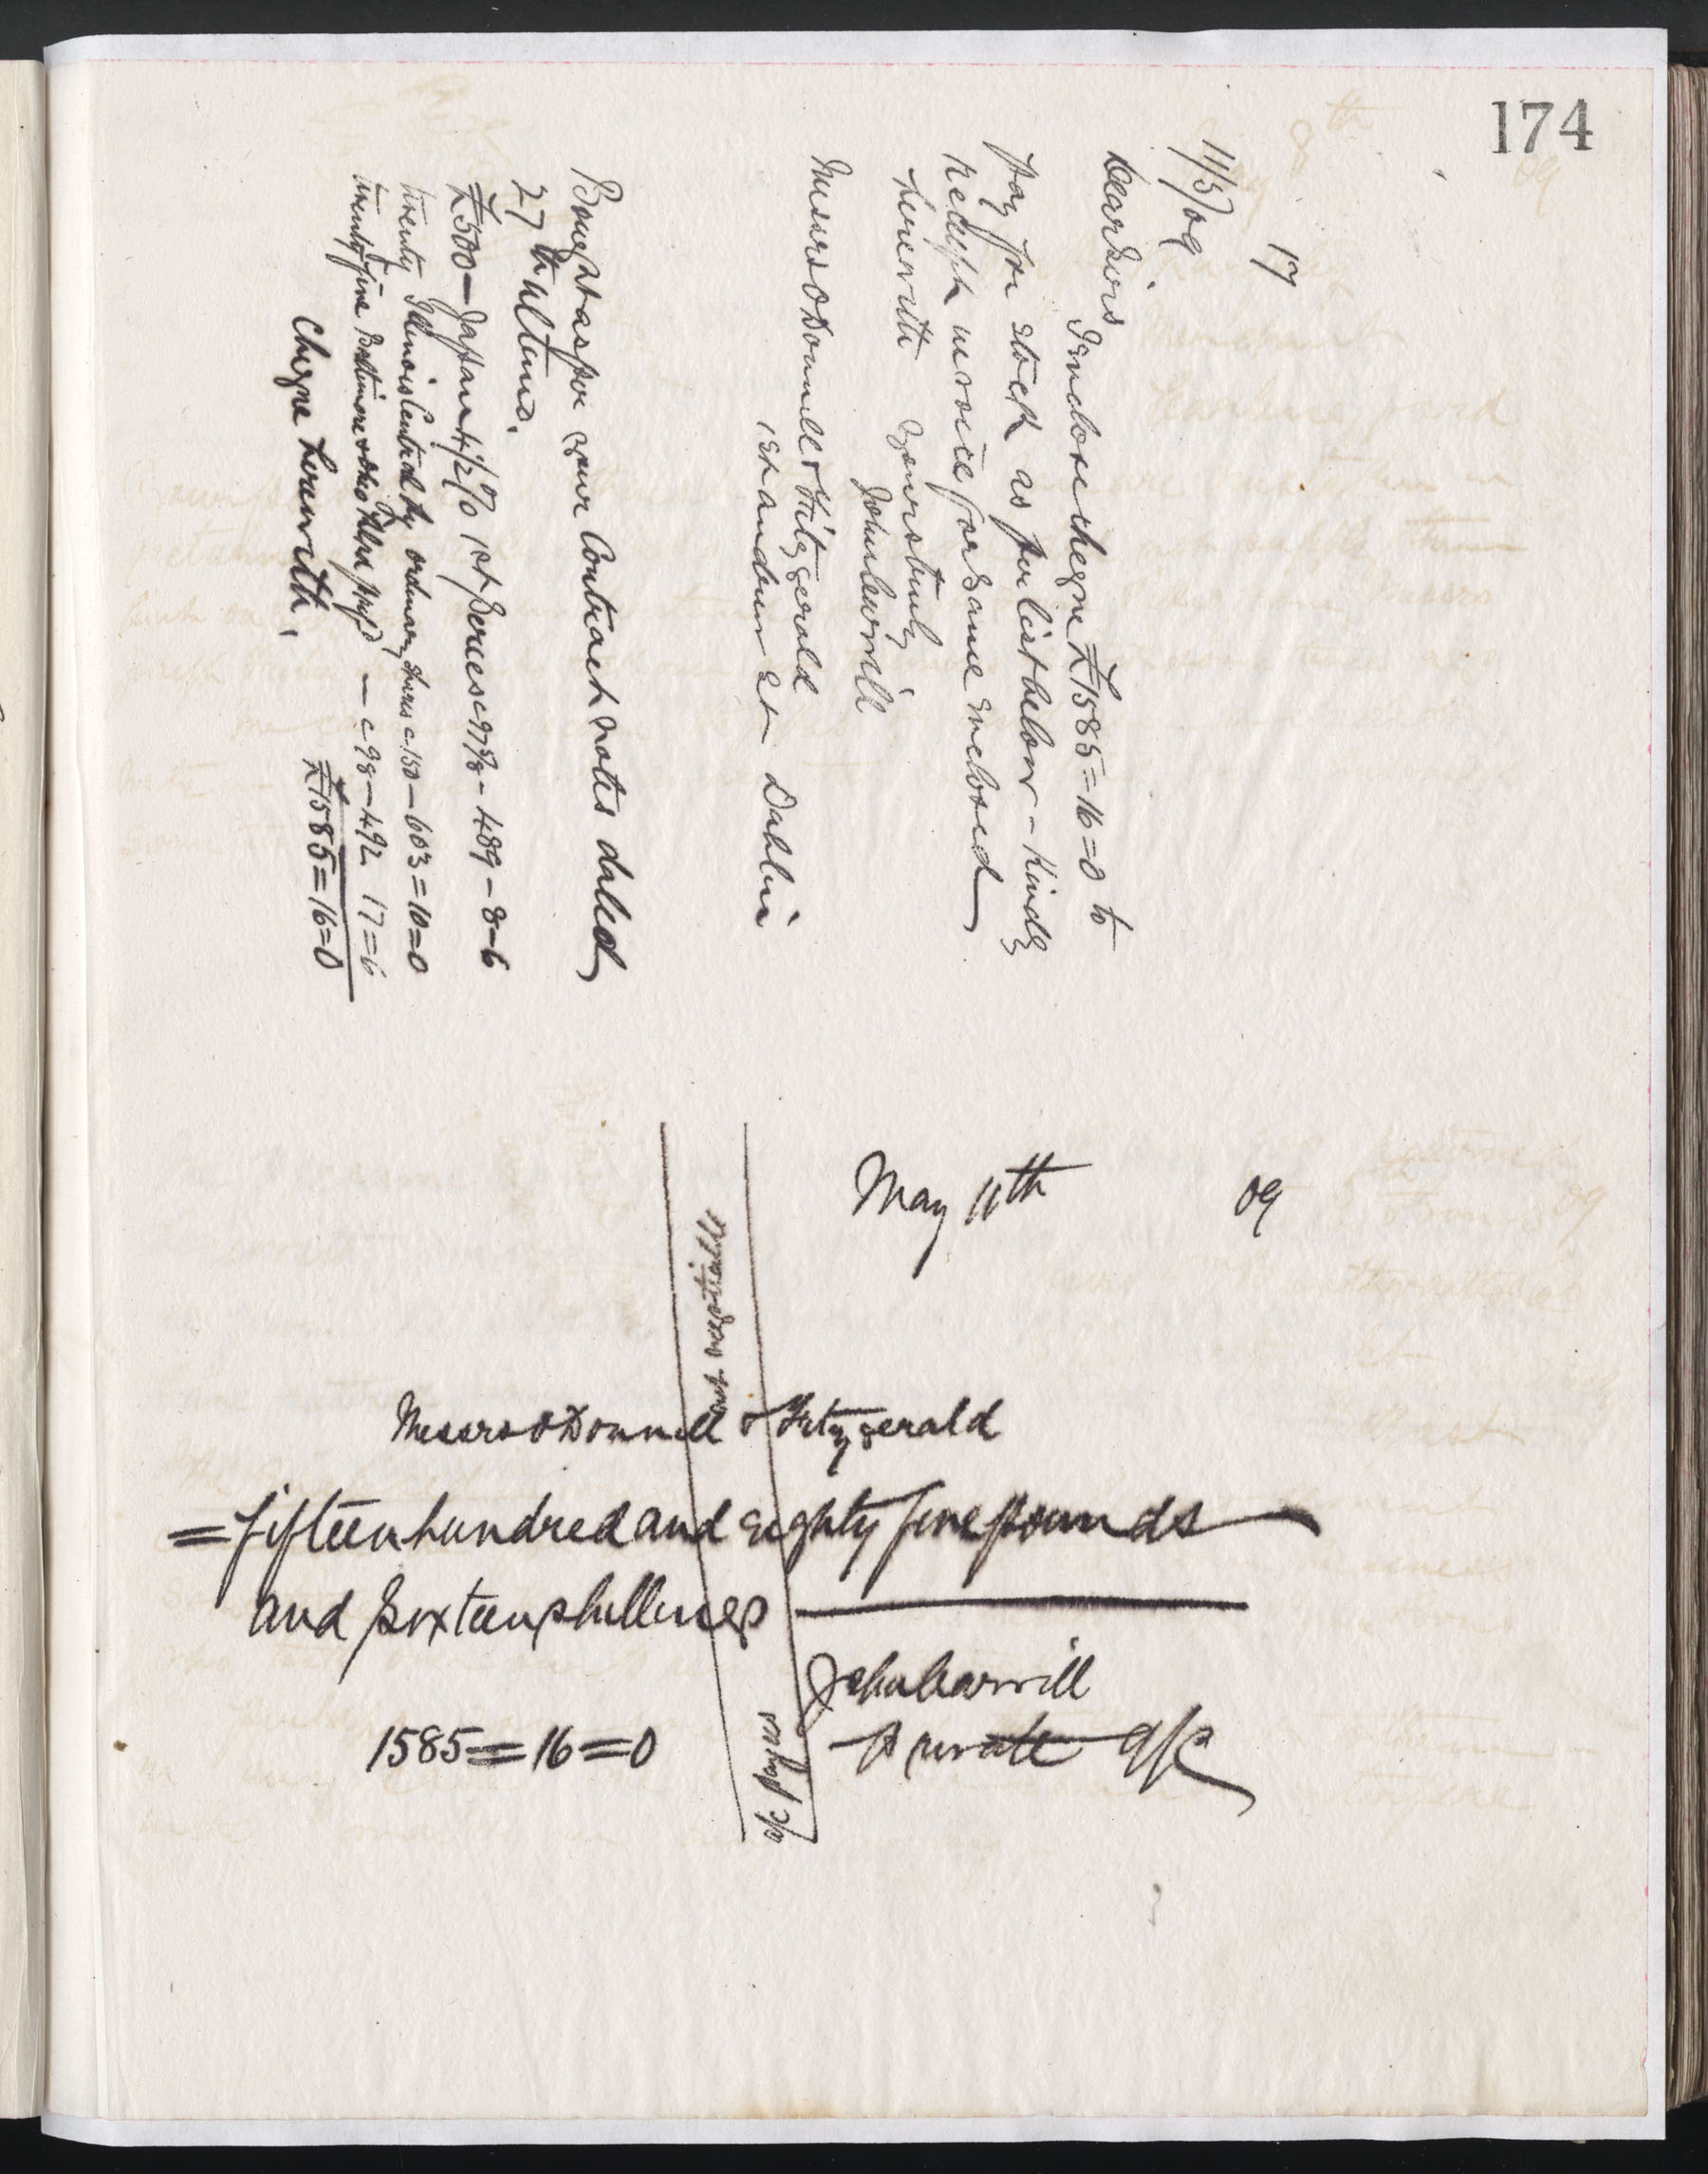 174
17
11/5/09
Dear Sirs
I Enclose cheqne £1585=16=0 to
pay for Stock as per list below - Kindly
receipt invoice for same Enclosed
herewith Yours truly
John
Messrs O'Donnell & Fitzgerald
1 St Andrew St Dublin
Bought as per your Contract notes dated
27th ultimo.
£500 - Japan 4½% 1st Series @ 97⅝ - 489-8-6
twenty Illinois Central Ry ordinary shares @ 150 - 603=10=0
twenty five Baltimore & Ohio - @ 98 - 492 17=6
£1585=16=0
Cheqne herewith.
May 11th 09
Messrs O'Donnell & Fitzgerald
=fifteen hundred and Eighty five pounds
and Sixteen shillings
John
Private a/c
1585=16=0
not negotiable
a/c payee